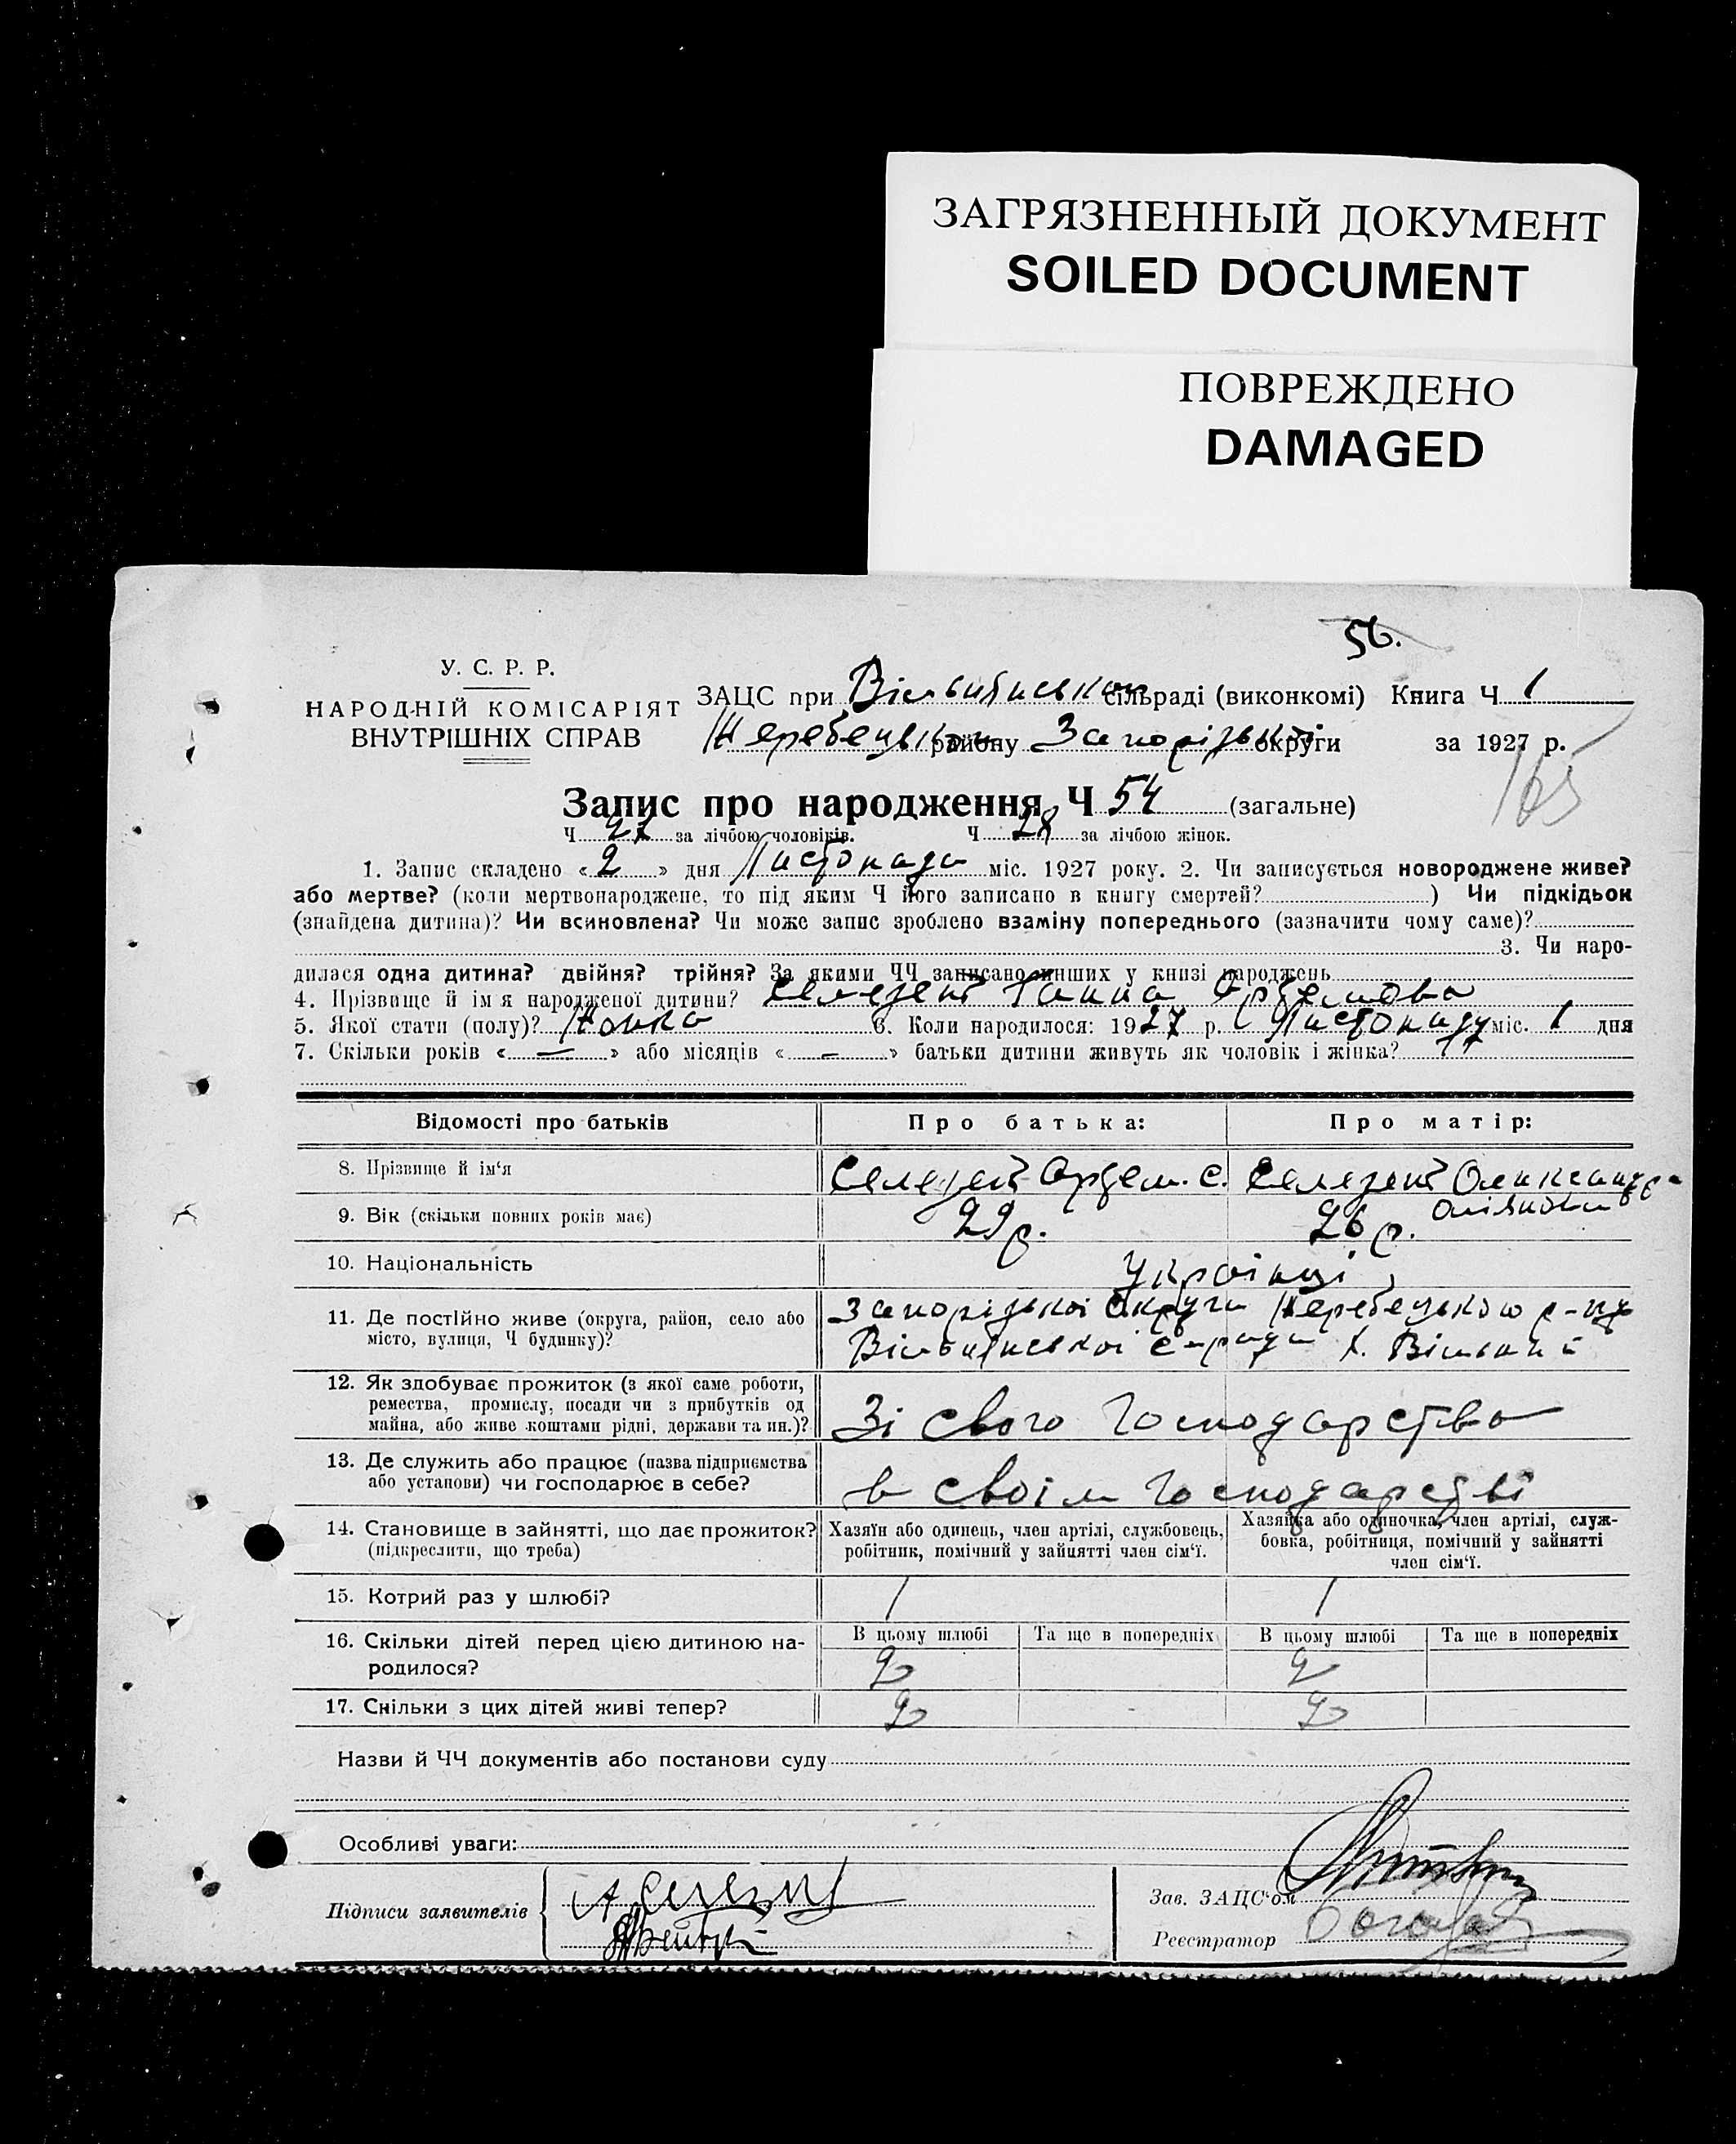 ЗАГРЯЗНЕННЫЙ ДОКУМЕНТ
SOILED DOCUMENT
ПОВРЕЖДЕНО
DAMAGED
56.
У. С. Р. Р.
НАРОДНІЙ КОМІСАРІЯТ
ВНУТРІШНІХ СПРАВ
ЗАЦС при сільраді (виконкомі) Книга Ч 1
району округи за 1927 р.
165
Запис про народження Ч 54 (загальне)
Ч за лічбою чоловіків. Ч 28 за лічбою жінок.
1. Запис складено « 2 » дня Листопада міс. 1927 року. 2. Чи записується новороджене живе?
або мертве? (коли мертвонароджене, то під яким Ч його записано в книгу смертей? ) Чи підкідьок
(знайдена дитина)? Чи всиновлена? Чи може запис зроблено взаміну попереднього (зазначити чому саме)?
3. Чи наро-
дилася одна дитина? двійня? трійня? За якими ЧЧ записано инших у книзі народжень
4. Прізвище й імя народженої дитини? Селезень Ганна Артемова
5. Якої стати (полу)? Жонка 6. Коли народилося: 1927 р. Листопаду міс. 1 дня
7. Скільки років « — » або місяців « — » батьки дитини живуть як чоловік і жінка?
Відомості про батьків Про батька: Про матір:
8. Прізвище й ім‘я Селезень Артем. С. Селезень Олександра
9. Вік (скільки повних років має) 29 р. 26 р.
10. Національність Українці
11. Де постійно живе (округа, район, село або Запорізької Округи Жеребецького р-ну
місто, вулиця, Ч будинку)? с-ради х. Вільний
12. Як здобуває прожиток (з якої саме роботи,
ремества, промислу, посади чи з прибутків од
майна, або живе коштами рідні, держави та ин.)? Зі свого господарства
13. Де служить або працює (назва підприємства
або установи) чи господарює в себе? в своїм господарстві
14. Становище в зайнятті, що дає прожиток? Хазяїн або одинець, член артілі, службовець, Хазяйка або одиночка, член артілі, служ-
(підкреслити, що треба) робітник, помічний у зайнятті член сім‘ї. бовка, робітниця, помічний у зайнятті
член сім‘ї.
15. Котрий раз у шлюбі? 1 1
16. Скільки дітей перед цією дитиною на- В цьому шлюбі Та ще в попередніх В цьому шлюбі Та ще в попередніх
родилося? 2 2
17. Скільки з цих дітей живі тепер? 2 2
Назви й ЧЧ документів або постанови суду
Особливі уваги:
Підписи заявителів
Зав. ЗАЦС‘ом
Реєстратор